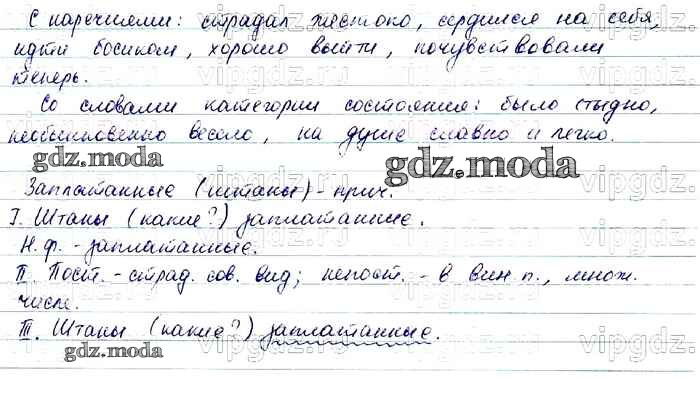 С наречиями: страдал жестоко, сердился на себя,
идти босиком, хорошо выйти, почувствовали
теперь.
Со словами категории состояния: было стыдно,
необыкновенно весело, на душе славно и легко.
gdz.moda
gdz.moda
Заплатанные (штаны) - прич.
I. Штаны (какие?) заплатанные.
Н.ф. - заплатанные.
II. Пост. - страд. сов. вид; непост. - в вин. п., множ.
числе.
III. Штаны (какие?) заплатанные.
gdz.moda